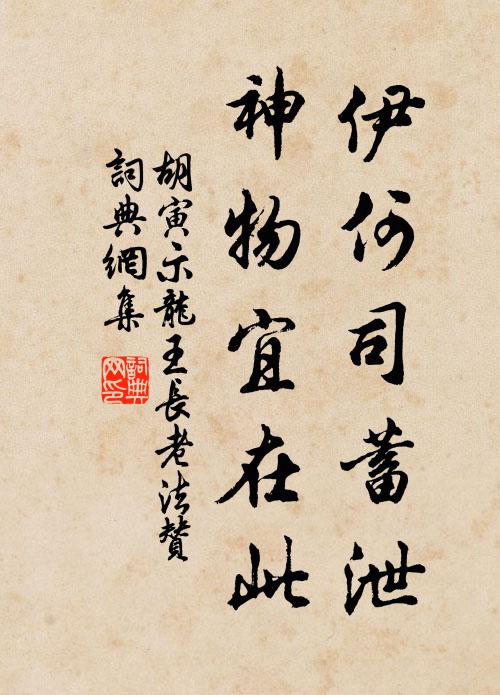 伊何司蓄泄
神物宜在此
胡寅示龍王長老法贊
詞典網集
詞典網印